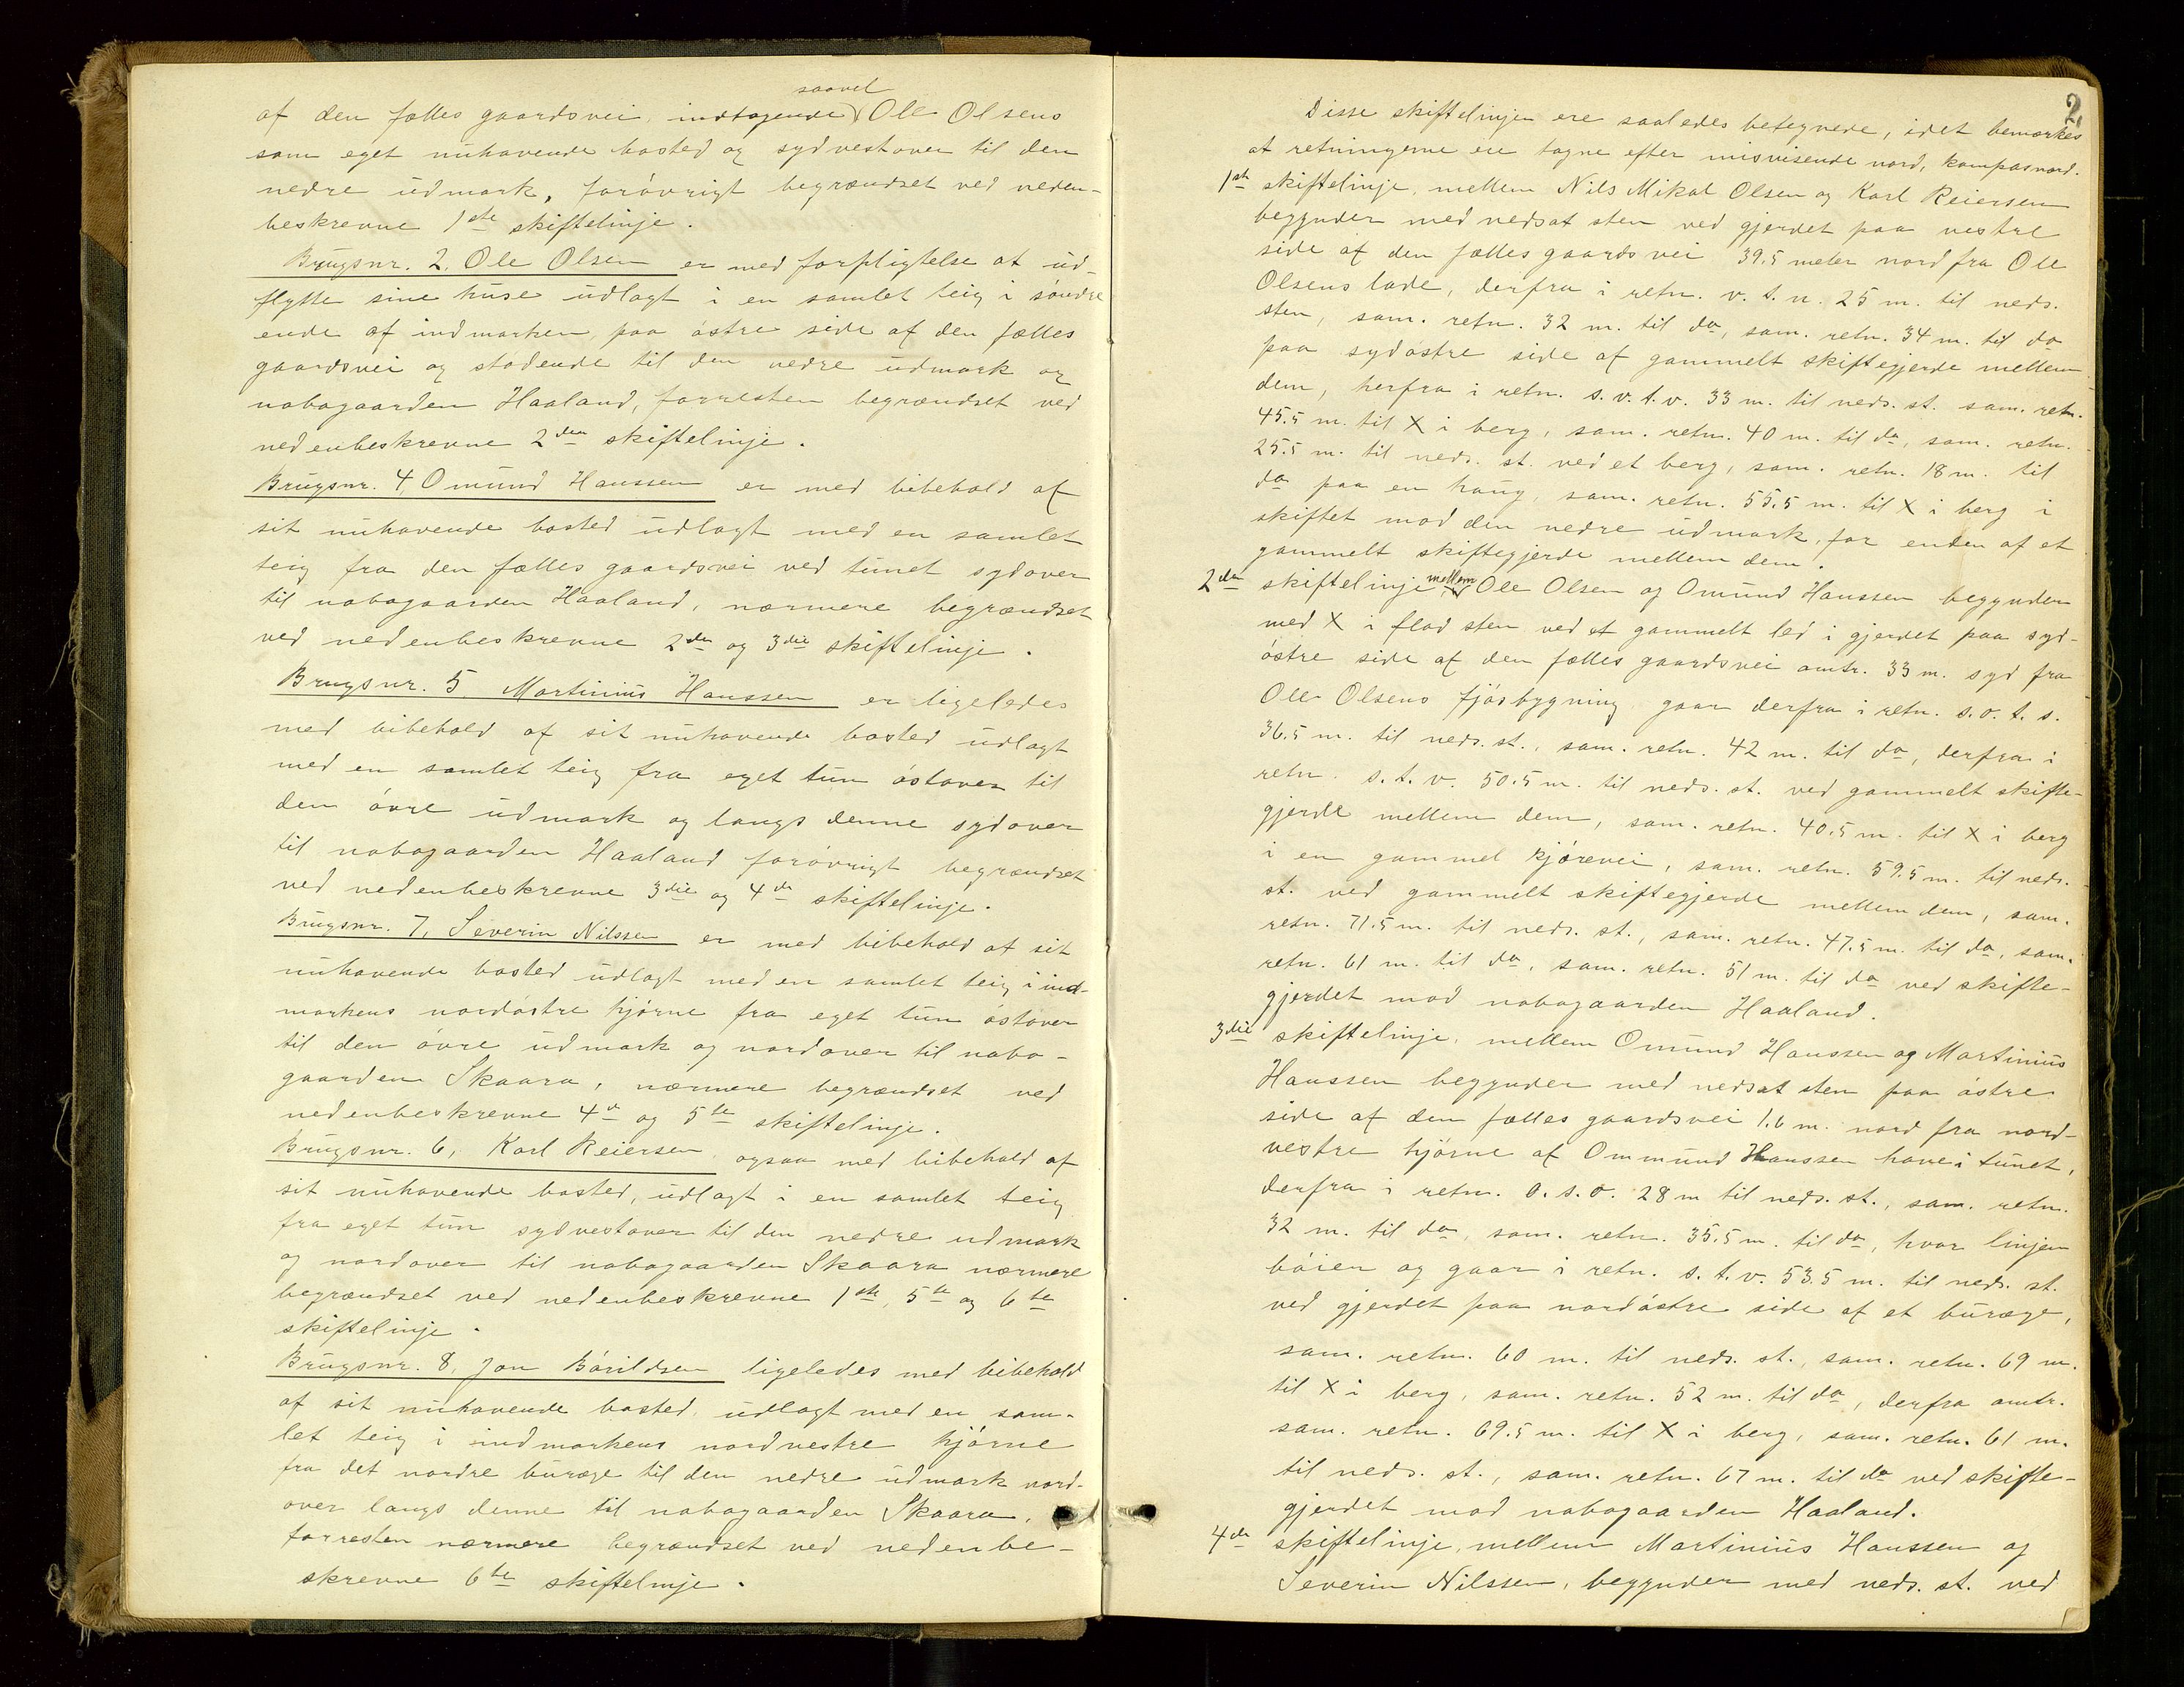 saavel
af den fælles gaardsvei, indtagende Ole Olsens
som eget nuhavende bosted og sydvestover til den
nedre udmark, forøvrigt begrændset ved neden-
beskrevne 1ste skiftelinje.
Brugsnr. 2, Ole Olsen er med forpligtelse at ud-
flytte sine huse udlagt i en samlet teig i søndre
ende af indmarken paa østre side af den fælles
gaardsvei og stødende til den nedre udmark og
nabogaarden Haaland, forresten begrændset ved
nedenbeskrevne 2den skiftelinje.
Brugsnr. 4, Omund Hanssen er med bibehold af
sit nuhavende bosted udlagt med en samlet
teig fra den fælles gaardsvei ved tunet sydover
til nabogaarden Haaland, nærmere begrændset
ved nedenbeskrevne 2den og 3die skiftelinje.
Brugsnr. 5. Martinius Hanssen er ligeledes
med bibehold af sit nuhavende bosted udlagt
med en samlet teig fra eget tun østover til
den øvre udmark og langs denne sydover
til nabogaarden Haaland forøvrigt begrændset
ved nedenbeskrevne 3die og 4de skiftelinje.
Brugsnr. 7, Severin Nilssen er med bibehold af sit
nuhavende bosted udlagt med en samlet teig i ind-
markens nordøstre hjørne fra eget tun østover
til den øvre udmark og nordover til nabo-
gaarden Skaara, nærmere begrændset ved
nedenbeskrevne 4de og 5te skiftelinje.
Brugsnr. 6, Karl Reiersen ogsaa med bibehold af
sit nuhavende bosted, udlagt i en samlet teig
fra eget tun sydvestover til den nedre udmark
og nordover til nabogaarden Skaara nærmere
begrændset ved nedenbeskrevne 1ste, 5te og 6te
skiftelinje.
Brugsnr. 8, Jon Bårildsen ligeledes med bibehold
af sit nuhavende bosted, udlagt med en sam-
let teig i indmarkens nordvestre hjørne
fra det nordre buræge til den nedre udmark nord-
over langs denne til nabogaarden Skaara,
forresten nærmere begrændset ved nedenbe-
skrevne 6te skiftelinje.
2.
Disse skiftelinjer ere saaledes betegnede, idet bemærkes
at retningerne ere tagne efter misvisende nord, kompasnord.
1ste skiftelinje, mellem Nils Mikal Olsen og Karl Reiersen
begynder med nedsat sten ved gjerdet paa vestre
side af den fælles gaardsvei 39.5 meter nord fra Ole
Olsens lade, derfra i retn. v. t. n. 25 m. til neds.
sten, sam. retn. 32 m. til do, sam. retn. 34 m. til do
paa sydøstre side af gammelt skiftegjerde mellem
dem, herfra i retn. s. v. t. v. 33 m. til neds. st. sam. retn.
45.5 m. til X i berg, sam. retn. 40 m. til do, sam. retn.
25.5 m. til neds. st. ved et berg, sam. retn. 18 m. til
do paa en haug, sam. retn. 55.5 m. til X i berg i
skiftet mod den nedre udmark, for enden af et
gammelt skiftegjerde mellem dem.
2den skiftelinje, mellem Ole Olsen og Omund Hanssen begynder
med X i flad sten ved et gammelt led i gjerdet paa syd-
østre side af den fælles gaardsvei omtr. 33 m. syd fra
Ole Olsens fjøsbygning gaar derfra i retn. s. o. t. s.
36.5 m. til neds. st., sam. retn. 42 m. til do, derfra i
retn. s. t. v. 50.5 m. til neds. st. ved gammelt skifte-
gjerde mellem dem, sam. retn. 40.5 m. til X i berg
i en gammel kjørevei, sam. retn. 59.5 m. til neds.
st. ved gammelt skiftegjerde mellem dem, sam.
retn. 71.5 m. til neds. st., sam. retn. 47.5 m. til do, sam.
retn. 61 m. til do, sam. retn. 51 m. til do ved skifte-
gjerdet mod nabogaarden Haaland.
3die skiftelinje, mellem Omund Hanssen og Martinius
Hanssen begynder med nedsat sten paa østre
side af den fælles gaardsvei 1.6 m. nord fra nord-
vestre hjørne af Ommund Hanssen have i tunet,
derfra i retn. o. s. o. 28 m til neds. st., sam. retn.
32 m. til do, sam. retn. 35.5 m. til do, hvor linjen
bøier og gaar i retn. s. t. v. 53.5 m. til neds. st.
ved gjerdet paa nordøstre side af et buræge,
sam. retn. 60 m. til neds. st., sam. retn. 69 m.
til X i berg, sam. retn. 52 m. til do, derfra omtr.
sam. retn. 69.5 m. til X i berg, sam. retn. 61 m.
til neds. st., sam. retn. 67 m. til do ved skifte-
gjerdet mod nabogaarden Haaland.
4de skiftelinje, mellem Martinius Hanssen og
Severin Nilssen, begynder med neds. st. ved